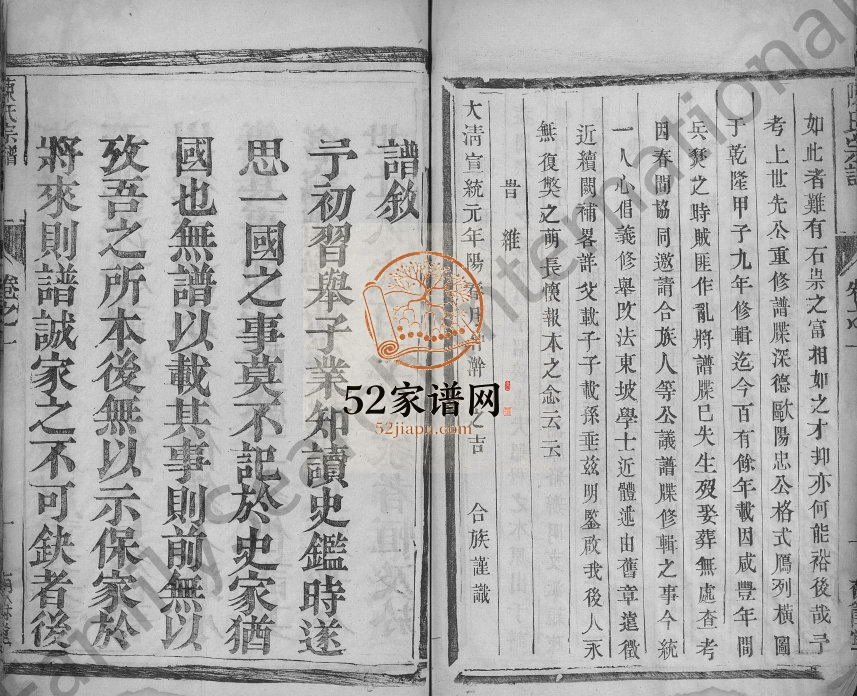 如此者雖有石祟之富相如之才抑亦何能裕後哉予
考上世先公重修譜牒深德歐陽忠公格式鴈列橫圖
于乾隆甲子九年修輯迄今百有餘年載因咸豐年間
兵燹之時賊匪作亂將譜牒已失生殁娶葬無處查考
因春間協同邀請合族人等公議譜牒修輯之事今統
一人心倡義修舉攺法東坡學士近體遞由舊章遠徵
近續闕補畧詳父載子子載孫垂兹明鑒啟我後人永
無復獘之萌長懷報本之念云云
旹維
大淸宣統元年陽 月 之吉 合族謹識
譜敘
予初習舉子業知讀史鑑時遂
思一國之事莫不記於史家猶
國也無譜以載其事則前無以
攷吾之所本後無以示保家於
將來則譜誠家之不可缺者後
陳氏宗譜
卷之一
一
陳氏宗譜
卷之一
52家谱网
52jiapu.com
Family Search International